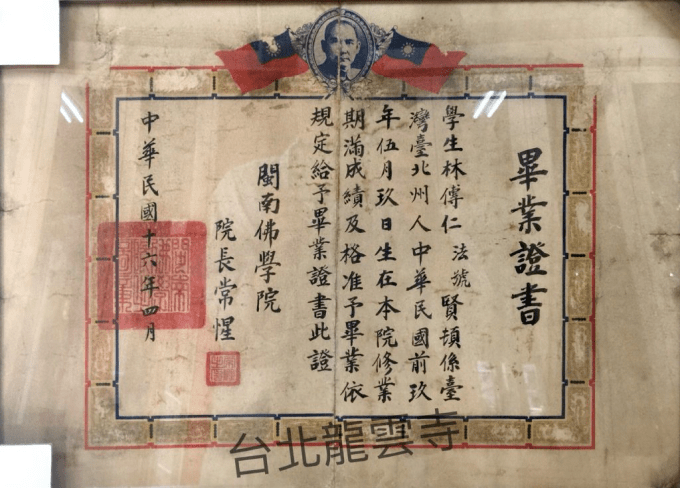 畢業證書
學生林傳仁法號賢頓係臺
灣臺北州人中華民國前玖
年伍月玖日生在本院修業
期滿成績及格准予畢業依
規定給予畢業證書此證
閩南佛學院
院長常惺
中華民國十六年四月
台北龍雲寺